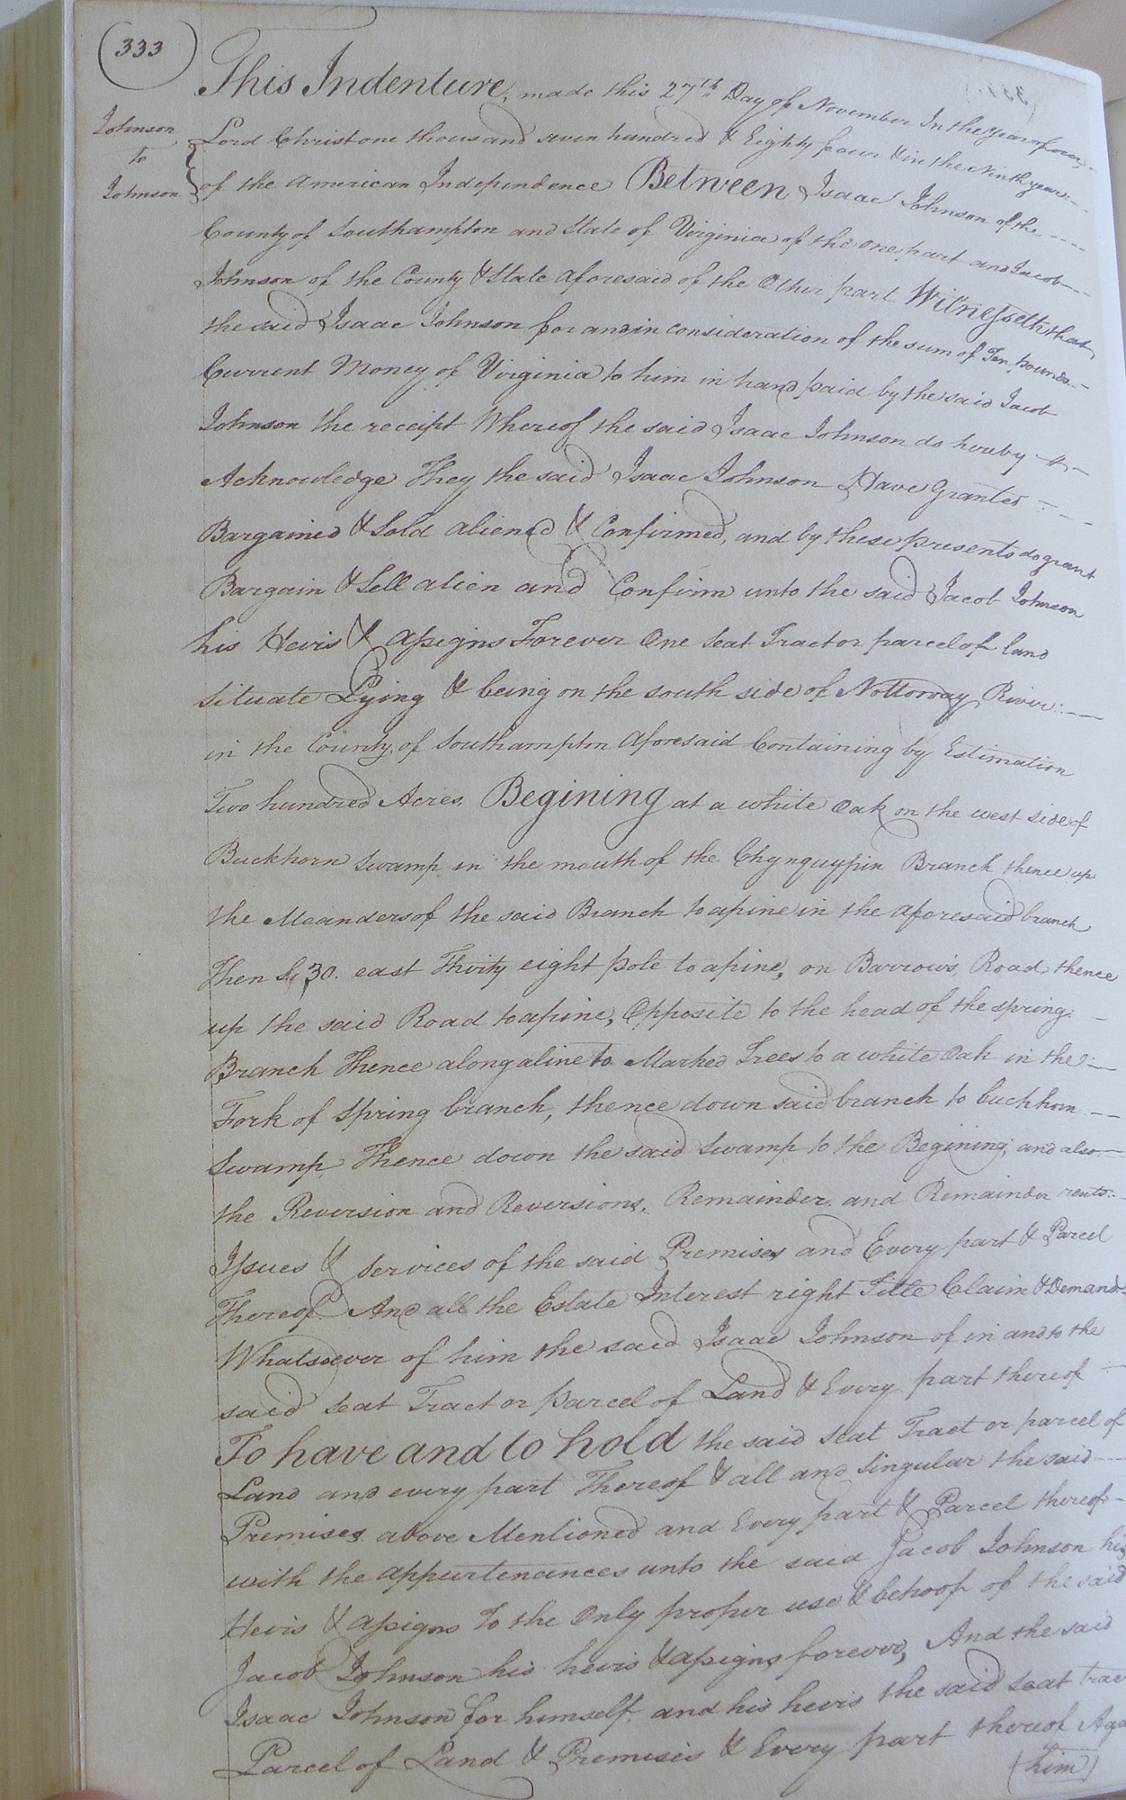 333
Johnson
to
Johnson
This Indenture, made this 27th Day of November In the year of our
Lord Christ one thousand seven hundred & Eighty four & in the Ninth year
of the American Independence Between Isaac Johnson of the
County of Southampton and State of Virginia of the one part and Jacob
Johnson of the County & State aforesaid of the Other part Witnesseth that
the said Isaac Johnson for and in consideration of the sum of Ten pounds
Current Money of Virginia to him in hand paid by the said Jacob
Johnson the receipt Whereof the said Isaac Johnson do hereby
Acknowledge They the said Isaac Johnson Have Granted
Bargained & Sold aliened & Confirmed, and by these presents do grant
Bargain & Sell alien and Confirm unto the said Jacob Johnson
his Hevis & assigns Forever One Seat Tract or parcel of land
Situate Lying & being on the south side of Nottoway River
in the County of Southampton Aforesaid Containing by Estimation
Two hundred Acres. Begining at a white Oak on the west side of
Buckhorn Swamp in the mouth of the Chynquypin Branch thence up
the Meanders of the said Branch to a pine in the aforesaid branch
Then So 30. east Thirty eight pole to a pine, on Barrow's Road thence
up the said Road to a pine, Opposite to the head of the spring
Branch Thence along a line to Marked Trees to a white Oak in the
Fork of Spring branch, thence down said branch to buckhorn
Swamp Thence down the said Swamp to the Begining and also
the Reversion and Reversions, Remainder and Remainder rents
Issues & services of the said Premises and Every part & Parcel
Thereof And all the Estate Interest right Title Claim & Demand
Whatsoever of him the said Isaac Johnson of in and to the
said Seat Tract or parcel of Land & Every part thereof
To have and to hold the said Seat Tract or parcel of
Land and every part Thereof & all and Singular the said
Premises above Mentioned and Every part & Parcel thereof
with the appurtenances unto the said Jacob Johnson his
Hevis & assigns To the Only proper use & behoof of the said
Jacob Johnson his hevis & assigns forever, And the said
Isaac Johnson for himself and his hevis the said Seat trac
Parcel of Land & Premises & Every part thereof Aga
(him)